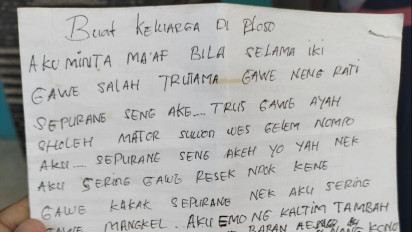 Buat KELUARGA DI PLOSO
AKU MINTA MA'AF BILA SELAMA IKI
GAWE SALAH TRUTAMA GAWE NENG RATI
SEPURANE SENG AKE.... TRUS GAWE AYAH
SHOLEH MATOR SUWON WES GELEM NOMPO
AKU.... SEPURANE SENG AKEH YO YAH NEK
AKU SERING GAWE RESEK NDOK KENE
GAWE KAKAK SEPURANE NEK AKU SERING
GAWE MANGKEL. AKU EMONG KALTIM TAMBAH
BABAN